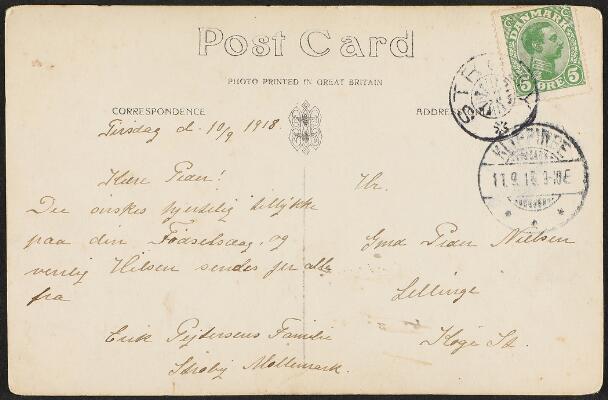 Post Card
PHOTO PRINTED IN GREAT BRITAIN
CORRESPONDENCE
ADDRESS
DANMARK
5 ØRE 5
STRØBY
11.9.18. 9-10E
Tirsdag d. 10/9 1918.
Kære Peder!
De ønskes hjertelig tillykke
paa din Fødselsdag, og
venlig Hilsen sendes jer alle
fra
Erik Pejtersens Familie
Strøby Møllemark.
Hr.
Gmd Peder Nielsen
Lellinge
Køge St.